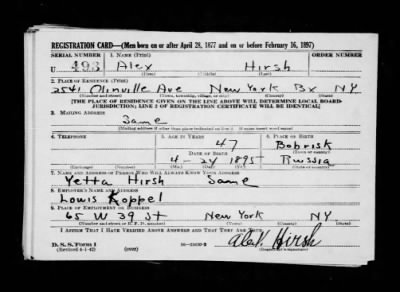 REGISTRATION CARD—(Men born on or after April 28, 1877 and on or before February 16, 1897)
SERIAL NUMBER 1. NAME (Print) ORDER NUMBER
U 493 Alex Hirsh
(First) (Middle) (Last)
2. PLACE OF RESIDENCE (Print)
2541 Olinville Ave New York Bx NY
(Number and street) (Town, township, village, or city) (County) (State)
[THE PLACE OF RESIDENCE GIVEN ON THE LINE ABOVE WILL DETERMINE LOCAL BOARD
JURISDICTION; LINE 2 OF REGISTRATION CERTIFICATE WILL BE IDENTICAL]
3. MAILING ADDRESS
Same
[Mailing address if other than place indicated on line 2. If same insert word same]
4. TELEPHONE 5. AGE IN YEARS 6. PLACE OF BIRTH
47 Bobrisk
DATE OF BIRTH (Town or county)
4-24 1895 Russia
(Exchange) (Number) (Mo.) (Day) (Yr.) (State or country)
7. NAME AND ADDRESS OF PERSON WHO WILL ALWAYS KNOW YOUR ADDRESS
Yetta Hirsh Same
8. EMPLOYER'S NAME AND ADDRESS
Louis Koppel
9. PLACE OF EMPLOYMENT OR BUSINESS
65 W 39 St New York NY
(Number and street or R. F. D. number) (Town) (County) (State)
I AFFIRM THAT I HAVE VERIFIED ABOVE ANSWERS AND THAT THEY ARE TRUE.
D. S. S. Form 1
(Revised 4-1-42) (over) Alex. Hirsh